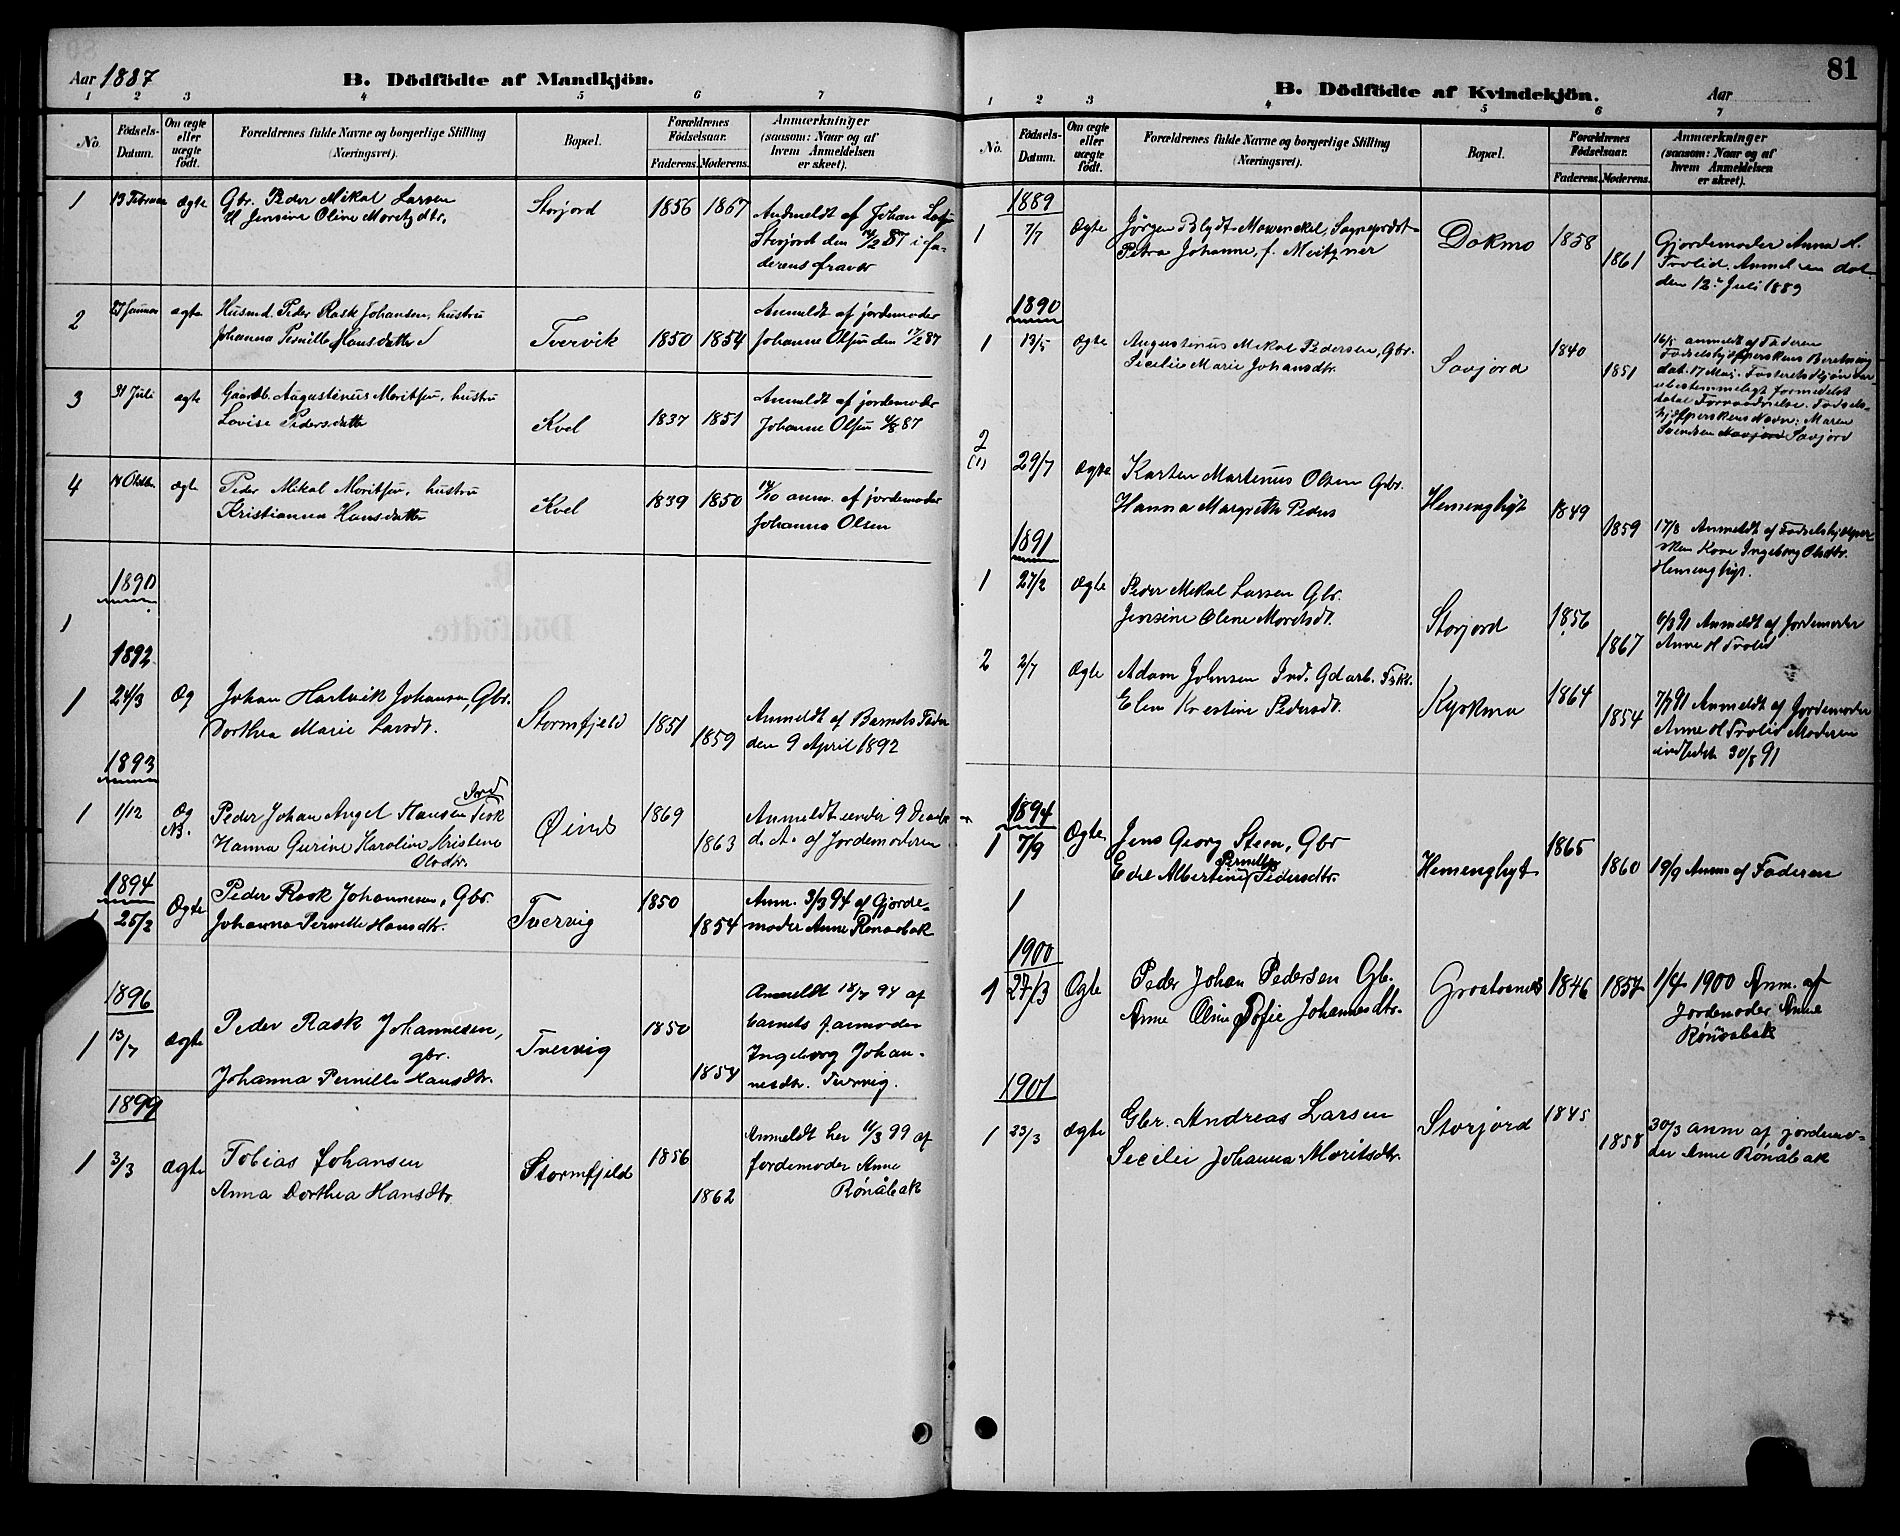 Aar 1887
B. Dödfödte af Mandkjön.
1 2 3 4 5 6 7
No. Födsels-Datum. Om ægte eller uægte födt. Forældrenes fulde Navne og borgerlige Stilling (Næringsvei). Bopæl. Forældrenes Födselsaar. Faderens. Moderens. Anmærkninger (saasom: Naar og af hvem Anmeldelsen er skeet).
1 Ægte Gbr. Peder Mikal Larsen Storjord 1856 1867 Anmeldt af Johan
H. Jensine Oline Moretzdtr. Storjord den 14/2 87 i fa-
derens fravær
2 27 Januar ægte Husmd. Peder Rask Johansen, hustru Tvervik 1850 1854 Anmeldt af jordemoder
Johanna Pernille Hansdatter Johanne Olsen den 17/2 87
3 31 Juli ægte Gaardb. Augustinus Moritsen, hustru Kvel 1837 1851 Anmeldt af jordemoder
Lovise Pedersdatter Johanne Olsen 4/8 87
4 ægte Peder Mikal Moritsen, hustru Kvel 1839 1850 anm. af jordemoder
Kristianna Hansdatter Johanna Olsen
1890
1
1892
1 24/3 Æg Johan Hartvik Johansen, Gbr. Stormfjeld 1851 1859 Anmeldt af Barnets Fader
Dorthea Marie Larsdt. den 9 April 1892
1893
1 1/12 Æg NB. Peder Johan Angel Hansen Ind. Fisk Øines 1869 1863 Anmeldt under 9 Decbr
Hanna Gurine Karoline Kristene Olsdtr. d. A. af Jordemoderen
1894
1 25/2 Ægte Peder Rask Johannesen, Gbr. Tvervig 1850 1854 Anm. 3/3 94 af Gjorde-
Johanna Pernille Hansdtr. moder Anne Rønaabak
1896
1 13/7 ægte Peder Rask Johannesen, gbr. Tvervig 1850 1854 Anmeldt 18/7 94 af
Johanna Pernille Hansdtr. barnets farmoder
Ingeborg Johan-
nesdtr. Tvervig.
1899
1 3/3 ægte Tobias Johansen Stormfjeld 1856 1862 Anmeldt her 11/3 99 af
Anna Dorthea Hansdtr. jordemoder Anne
Rønåbak
81
B. Dödfödte af Kvindekjön.
Aar
1 2 3 4 5 6 7
No. Födsels-Datum. Om ægte eller uægte födt. Forældrenes fulde Navne og borgerlige Stilling (Næringsvei). Bopæl. Forældrenes Födselsaar. Faderens. Moderens. Anmærkninger (saasom: Naar og af hvem Anmeldelsen er skeet).
1889
1 7/7 Ægte Jørgen Blydt Mowinckel, Sogneprest Dokmo 1858 1861 Gjordemoder Anna H.
Petra Johanne, f. Meitzner Trolid, Anmel en dat
den 12' Juli 1889
1890
1 13/5 Ægte Augustinus Mekal Pedersen, Gbr. Savjord 1840 1851 16/5 anmeldt af Faderen
Sicilie Marie Johansdtr. Fødselshjælperskens Beretning
dat. 17 Maj. Fosterets Kjøn var
ubestemmeligt formedelst
total Forraadnelse. Fødsels-
hjælperskens Navn: Maren
Svendsen Savjord
2 (1) 29/7 Ægte Karsten Martenus Olsen Gbr. Hemenghyt 1849 1859 17/8 Anmeldt af Fødselshjælper
Hanna Margrethe Peders sken Kone Ingeborg Olsdtr.
Hemenghyt.
1891
1 27/2 Ægte Peder Mekal Larsen Gbr. Storjord 1856 1867 6/3 91 Anmeldt af Jordemoder
Jensine Olene Moretsdt. Anne H Trolid
2 2/7 Ægte Adam Johnsen Ind. Gdarb. Fskr. Kjøkma 1864 1854 7/7 91 Anmeldt af Jordemoder
Elen Krestine Pedersdt. Anne H Trolid Moderen
indledet 30/8 91
1894
1 7/9 Ægte Jens Georg Steen, Gbr Hemenghyt 1865 1860 19/9 Anm. af Faderen
Edel Albertine Pernille Pedersdtr.
1
1900
1 27/3 Ægte Peder Johan Pedersen Gb. Graatanes 1846 1857 1/4 1900 Anm. af
Anne Oline Sofie Johannesdtr. Jordemoder Anne
Rønåbak
1901
1 23/3 ægte Gbr. Andreas Larsen Storjord 1845 1858 30/3 anm af jordemo-
Secilei Johanna Moritsdtr. der Anne Rønåbak